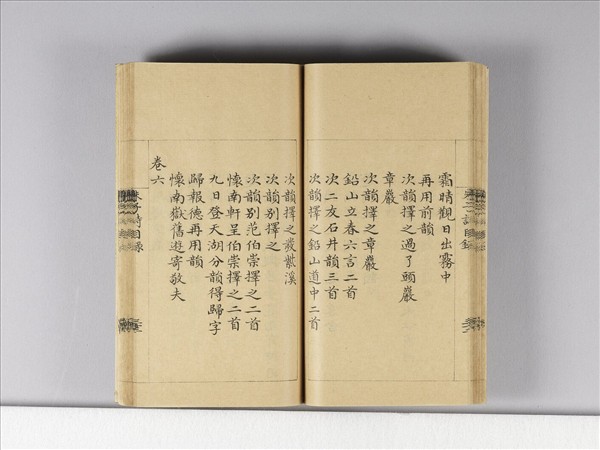 霜晴觀日出霧中
再用前韻
次韻擇之過了頭巖
章巖
次韻擇之章巖
鉛山立春六言二首
次二友石井韻三首
次韻擇之鉛山道中二首
次韻擇之發紫溪
次韻別擇之
次韻別范伯崇擇之二首
懷南軒呈伯崇擇之二首
九日登天湖分韻得歸字
歸報德再用韻
懷南嶽舊遊寄敬夫
卷六